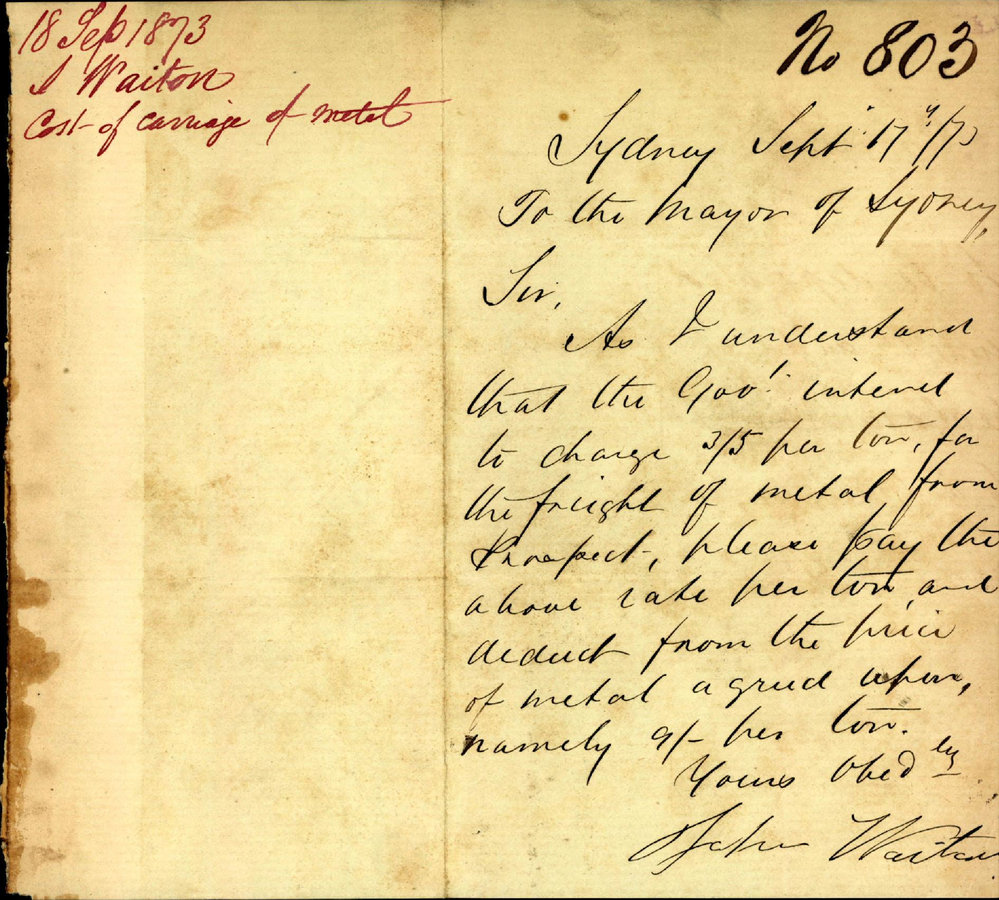 18 Sep 1873
J Waiton
Cost of carriage of metal
No 803
Sydney Sept 17th/73
To the Mayor of Sydney,
Sir,
As I understand
that the Govt. intend
to charge 3/5 per ton, for
the freight of metal from
Prospect, please pay the
above rate per ton, and
deduct from the price
of metal agreed upon,
namely 9/- per ton.
Yours Obedly
John Waiton